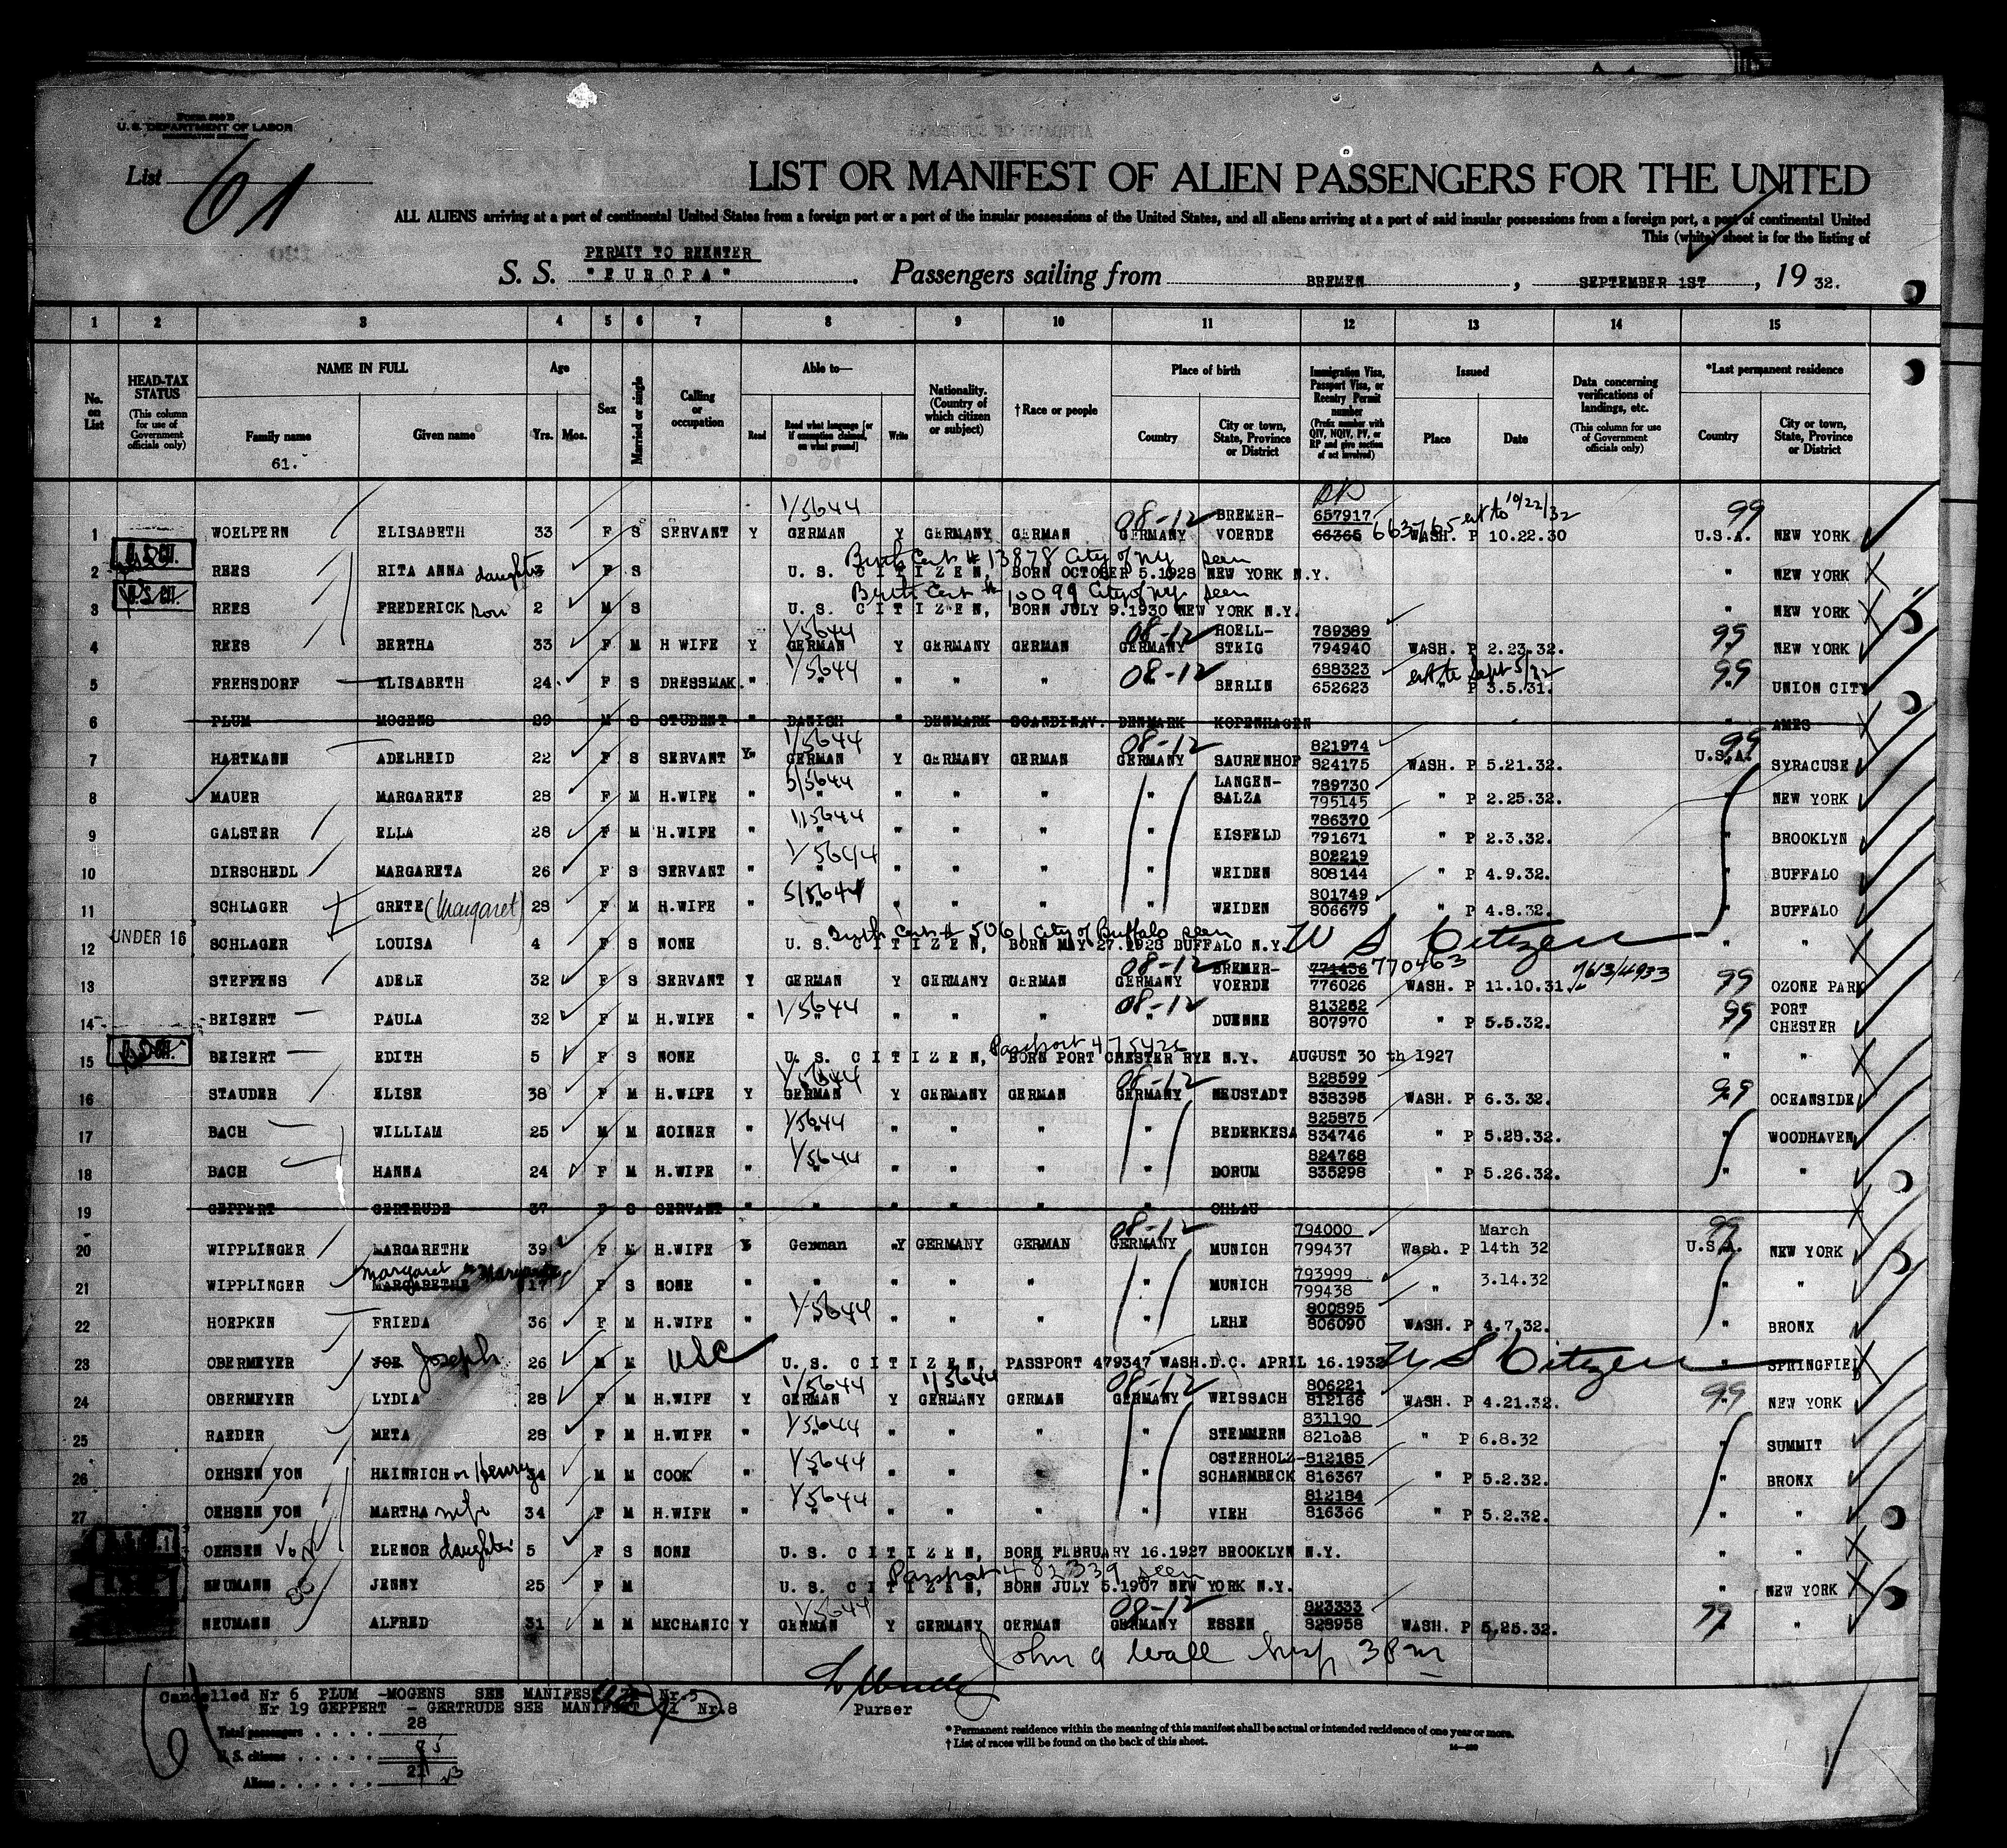 Form 500 B
U. S. DEPARTMENT OF LABOR
List 61
LIST OR MANIFEST OF ALIEN PASSENGERS FOR THE UNITED
ALL ALIENS arriving at a port of continental United States from a foreign port or a port of the insular possessions of the United States, and all aliens arriving at a port of said insular possessions from a foreign port, a port of continental United
This (white) sheet is for the listing of
PERMIT TO REENTER
S. S. "EUROPA". Passengers sailing from BREMEN, SEPTEMBER 1ST, 19 32.
1 2 3 4 5 6 7 8 9 10 11 12 13 14 15
No. on List
HEAD-TAX STATUS (This column for use of Government officials only)
NAME IN FULL Family name Given name
61.
Age Yrs. Mos.
Sex
Married or single
Calling or occupation
Able to— Read Read what language [or if exemption claimed, on what ground] Write
Nationality. (Country of which citizen or subject)
†Race or people
Place of birth Country City or town, State, Province or District
Immigration Visa, Passport Visa, or Reentry Permit number (Prefix number with QIV, NQIV, PV, or RP and give section of act involved)
Issued Place Date
Data concerning verifications of landings, etc. (This column for use of Government officials only)
*Last permanent residence Country City or town, State, Province or District
1/5644 08-12 BREMER- 657917 663765 ext to 10/22/32 99
1 WOELPERN ELISABETH 33 F S SERVANT Y GERMAN Y GERMANY GERMAN GERMANY VOERDE 66365 WASH. P 10.22.30 U.S.A. NEW YORK
Birth Cert # 13878 City of NY seen
2 REES RITA ANNA daughter 3 F S U. S. CITIZEN, BORN OCTOBER 5.1928 NEW YORK N.Y. " NEW YORK
Birth Cert # 10099 City of NY seen
3 REES FREDERICK son 2 M S U. S. CITIZEN, BORN JULY 9.1930 NEW YORK N.Y. " NEW YORK
1/5644 08-12 HOELL- 789389 99
4 REES BERTHA 33 F M H WIFE Y GERMAN Y GERMANY GERMAN GERMANY STEIG 794940 WASH. P 2.23.32. NEW YORK
1/5644 08-12 688323 ext to Sept 5/32 99
5 FREHSDORF ELISABETH 24 F S DRESSMAK. " " " " " BERLIN 652623 " P 3.5.31. UNION CITY
6 PLUM MOGENS 29 M S STUDENT " DANISH " DENMARK SCANDINAV. DENMARK KOPENHAGEN " AMES
1/5644 08-12 821974 99
7 HARTMANN ADELHEID 22 F S SERVANT Y GERMAN Y GERMANY GERMAN GERMANY SAURENHOP 824175 WASH. P 5.21.32. U.S.A. SYRACUSE
5/5644 LANGEN- 789730
8 MAUER MARGARETE 28 F M H.WIFE " " " " " " SALZA 795145 " P 2.25.32. " NEW YORK
1/5644 786370
9 GALSTER ELLA 28 F M H.WIFE " " " " " " EISFELD 791671 " P 2.3.32. " BROOKLYN
1/5644 802219
10 DIRSCHEDL MARGARETA 26 F S SERVANT " " " " " " WEIDEN 808144 " P 4.9.32. " BUFFALO
5/5644 801749
11 SCHLAGER GRETE (Margaret) 28 F M H.WIFE " " " " " " WEIDEN 806679 " P 4.8.32. " BUFFALO
Birth Cert # 5061 City of Buffalo seen
12 UNDER 16 SCHLAGER LOUISA 4 F S NONE U. S. CITIZEN, BORN MAY 27.1928 BUFFALO N.Y. U S Citizen " "
08-12 BREMER- 771436 770463
13 STEFFENS ADELE 32 F S SERVANT Y GERMAN Y GERMANY GERMAN GERMANY VOERDE 776026 WASH. P 11.10.31. 99 OZONE PARK
1/5644 08-12 813262 PORT
14 BEISERT PAULA 32 F M H.WIFE " " " " " " DUENNE 807970 " P 5.5.32. 99 CHESTER
Passport 475426
15 BEISERT EDITH 5 F S NONE U. S. CITIZEN, BORN PORT CHESTER RYE N.Y. AUGUST 30 th 1927 " "
1/5644 08-12 828599
16 STAUDER ELISE 38 F M H.WIFE Y GERMAN Y GERMANY GERMAN GERMANY NEUSTADT 838395 WASH. P 6.3.32. 99 OCEANSIDE
1/5644 825875
17 BACH WILLIAM 25 M M JOINER " " " " " " BEDERKESA 834746 " P 5.28.32. " WOODHAVEN
1/5644 824768
18 BACH HANNA 24 F M H.WIFE " " " " " " DORUM 835298 " P 5.26.32. " "
19 GEPPERT GERTRUDE 37 F S SERVANT " " " " " " OHLAU
08-12 794000 March 99
20 WIPPLINGER MARGARETHE 39 F M H.WIFE Y German Y GERMANY GERMAN GERMANY MUNICH 799437 Wash. P 14th 32 U.S.A. NEW YORK
Margaret 793999
21 WIPPLINGER MARGARETHE 17 F S NONE " " " " " " MUNICH 799438 " 3.14.32 " "
1/5644 800895
22 HOEPKEN FRIEDA 36 F M H.WIFE " " " " " " LEHE 806090 WASH. P 4.7.32. " BRONX
23 OBERMEYER JOE Joseph 26 M M USC U. S. CITIZEN, PASSPORT 479347 WASH.D.C. APRIL 16.1932 U S Citizen " SPRINGFIEL
1/5644 1/5644 08-12 806221
24 OBERMEYER LYDIA 28 F M H.WIFE Y GERMAN Y GERMANY GERMAN GERMANY WEISSACH 812166 WASH. P 4.21.32. 99 NEW YORK
1/5644 831190
25 RAEDER META 28 F M H.WIFE " " " " " " STEMMERN 821018 " P 6.8.32 " SUMMIT
1/5644 OSTERHOLZ- 812185
26 OEHSEN VON HEINRICH or Henry 34 M M COOK " " " " " " SCHARMBECK 816367 " P 5.2.32. " BRONX
1/5644 812184
27 OEHSEN VON MARTHA wife 34 F M H.WIFE " " " " " " VIEH 816366 " P 5.2.32. " "
OEHSEN Von ELENOR daughter 5 F S NONE U. S. CITIZEN, BORN FEBRUARY 16.1927 BROOKLYN N.Y. " "
Passport 482339 seen
NEUMANN JENNY 25 F M U. S. CITIZEN, BORN JULY 5.1907 NEW YORK N.Y. " NEW YORK
1/5644 08-12 823333
NEUMANN ALFRED 31 M M MECHANIC Y GERMAN Y GERMANY GERMAN GERMANY ESSEN 828958 WASH. P 5.25.32. 99 "
John A Wall Insp
Cancelled Nr 6 PLUM -MOGENS SEE MANIFEST Nr.5
Nr 19 GEPPERT - GERTRUDE SEE MANIFEST Nr.8
Purser
Total passengers . . . . 28
U. S. citizens . . . . .
Aliens . . . . . . 21
61
* Permanent residence within the meaning of this manifest shall be actual or intended residence of one year or more.
† List of races will be found on the back of this sheet.